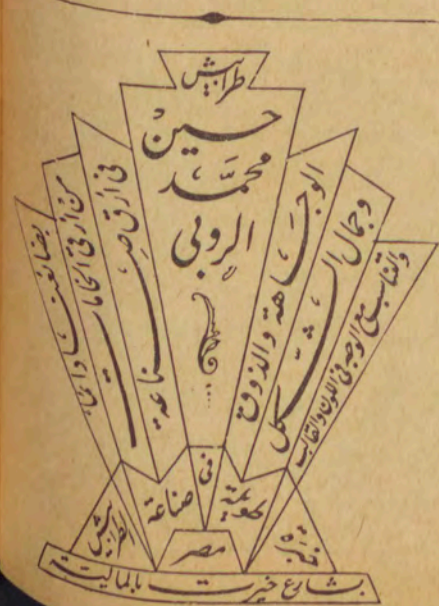 طرابيش
حسين
محمد
الروبي
الوجاهة والذوق
وجمال الشكل
والتناسب مع الوجه في اللون والقالب
في ارقى صناعة
من ارقى الخامات
بضائعنا دائما
في
صناعة
الطرابيش
مصر
بشارع خيرت بالمالية